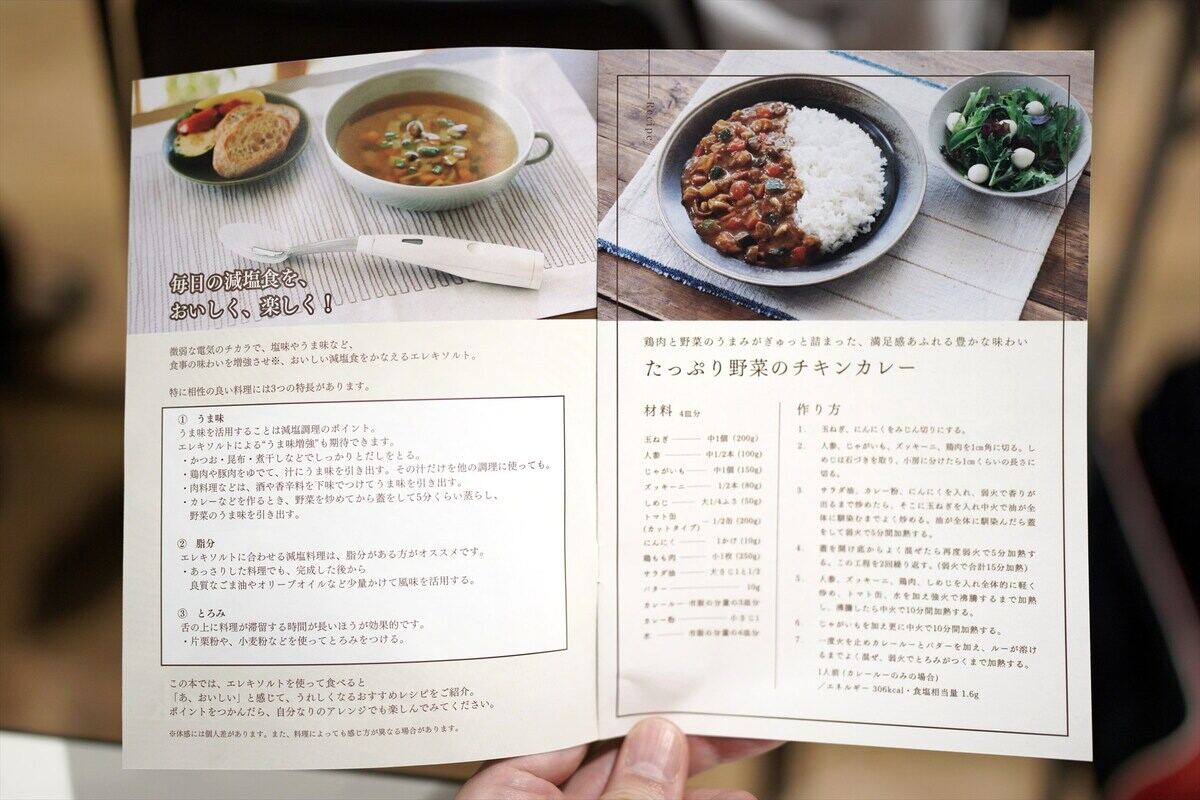 毎日の減塩食を、
おいしく、楽しく！
微弱な電気のチカラで、塩味やうま味など、
食事の味わいを増強させ※、おいしい減塩食をかなえるエレキソルト。
特に相性の良い料理には3つの特長があります。
① うま味
うま味を活用することは減塩調理のポイント。
エレキソルトによる“うま味増強”も期待できます。
・かつお・昆布・煮干しなどでしっかりとだしをとる。
・鶏肉や豚肉をゆでて、汁にうま味を引き出す。その汁だけを他の調理に使っても。
・肉料理などは、酒や香辛料を下味でつけてうま味を引き出す。
・カレーなどを作るとき、野菜を炒めてから蓋をして5分くらい蒸らし、
野菜のうま味を引き出す。
② 脂分
エレキソルトに合わせる減塩料理は、脂分がある方がオススメです。
・あっさりした料理でも、完成した後から
良質なごま油やオリーブオイルなど少量かけて風味を活用する。
③ とろみ
舌の上に料理が滞留する時間が長いほうが効果的です。
・片栗粉や、小麦粉などを使ってとろみをつける。
この本では、エレキソルトを使って食べると
「あ、おいしい」と感じて、うれしくなるおすすめレシピをご紹介。
ポイントをつかんだら、自分なりのアレンジでも楽しんでみてください。
※体感には個人差があります。また、料理によっても感じ方が異なる場合があります。
Recipe
鶏肉と野菜のうまみがぎゅっと詰まった、満足感あふれる豊かな味わい
たっぷり野菜のチキンカレー
材料 4皿分
玉ねぎ 中1個（200g）
人参 中1/2本（100g）
じゃがいも 中1個（150g）
ズッキーニ 1/2本（80g）
しめじ 大1/4ふさ（50g）
トマト缶
（カットタイプ） 1/2缶（200g）
にんにく 1かけ（10g）
鶏もも肉 小1枚（250g）
サラダ油 大さじ1と1/2
バター 10g
カレールー 市販の分量の3皿分
カレー粉 小さじ1
水 市販の分量の4皿分
作り方
1. 玉ねぎ、にんにくをみじん切りにする。
2. 人参、じゃがいも、ズッキーニ、鶏肉を1cm角に切る。し
めじは石づきを取り、小房に分けたら1cmくらいの長さに
切る。
3. サラダ油、カレー粉、にんにくを入れ、弱火で香りが
出るまで炒めたら、そこに玉ねぎを入れ中火で油が全
体に馴染むまでよく炒める。油が全体に馴染んだら蓋
をして弱火で5分間加熱する。
4. 蓋を開け底からよく混ぜたら再度弱火で5分加熱す
る。この工程を2回繰り返す。（弱火で合計15分加熱）
5. 人参、ズッキーニ、鶏肉、しめじを入れ全体的に軽く
炒め、トマト缶、水を加え強火で沸騰するまで加熱
し、沸騰したら中火で10分間加熱する。
6. じゃがいもを加え更に中火で10分間加熱する。
7. 一度火を止めカレールーとバターを加え、ルーが溶け
るまでよく混ぜ、弱火でとろみがつくまで加熱する。
1人前（カレールーのみの場合）
／エネルギー 306kcal・食塩相当量 1.6g